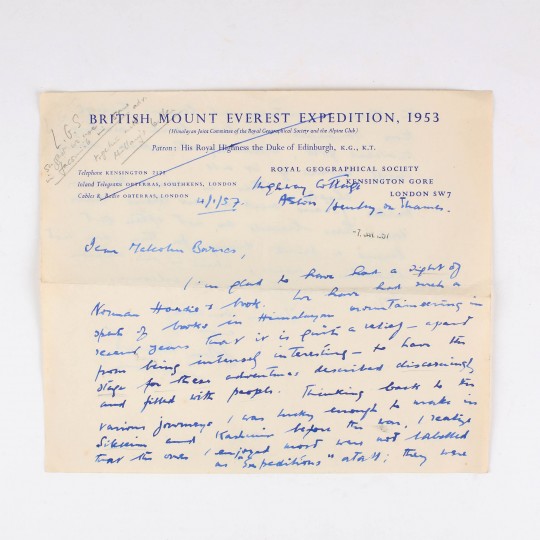 L.G.S.
BRITISH MOUNT EVEREST EXPEDITION, 1953
(Himalayan Joint Committee of the Royal Geographical Society and the Alpine Club)
Patron: His Royal Highness the Duke of Edinburgh, K.G., K.T.
Telephone KENSINGTON
ROYAL GEOGRAPHICAL SOCIETY
Inland Telegrams OBTERRAS, SOUTHKENS, LONDON
Highway Cottage
KENSINGTON GORE
Cables & Radio OBTERRAS, LONDON
LONDON SW7
4/1/57.
Aston Henley-on-Thames.
Dear Malcolm Barnes,
I'm glad to have had a sight of
Norman Hardie's book. We have had such a
spate of books in Himalayan mountaineering in
recent years that it is quite a relief – apart
from being intensely interesting – to have the
stage for these adventures described discerningly
and filled with people. Thinking back to the
various journeys I was lucky enough to make in
Sikkim and Kashmir before the war, I realize
that the ones I enjoyed most were not labelled
as "Expeditions" at all; they were